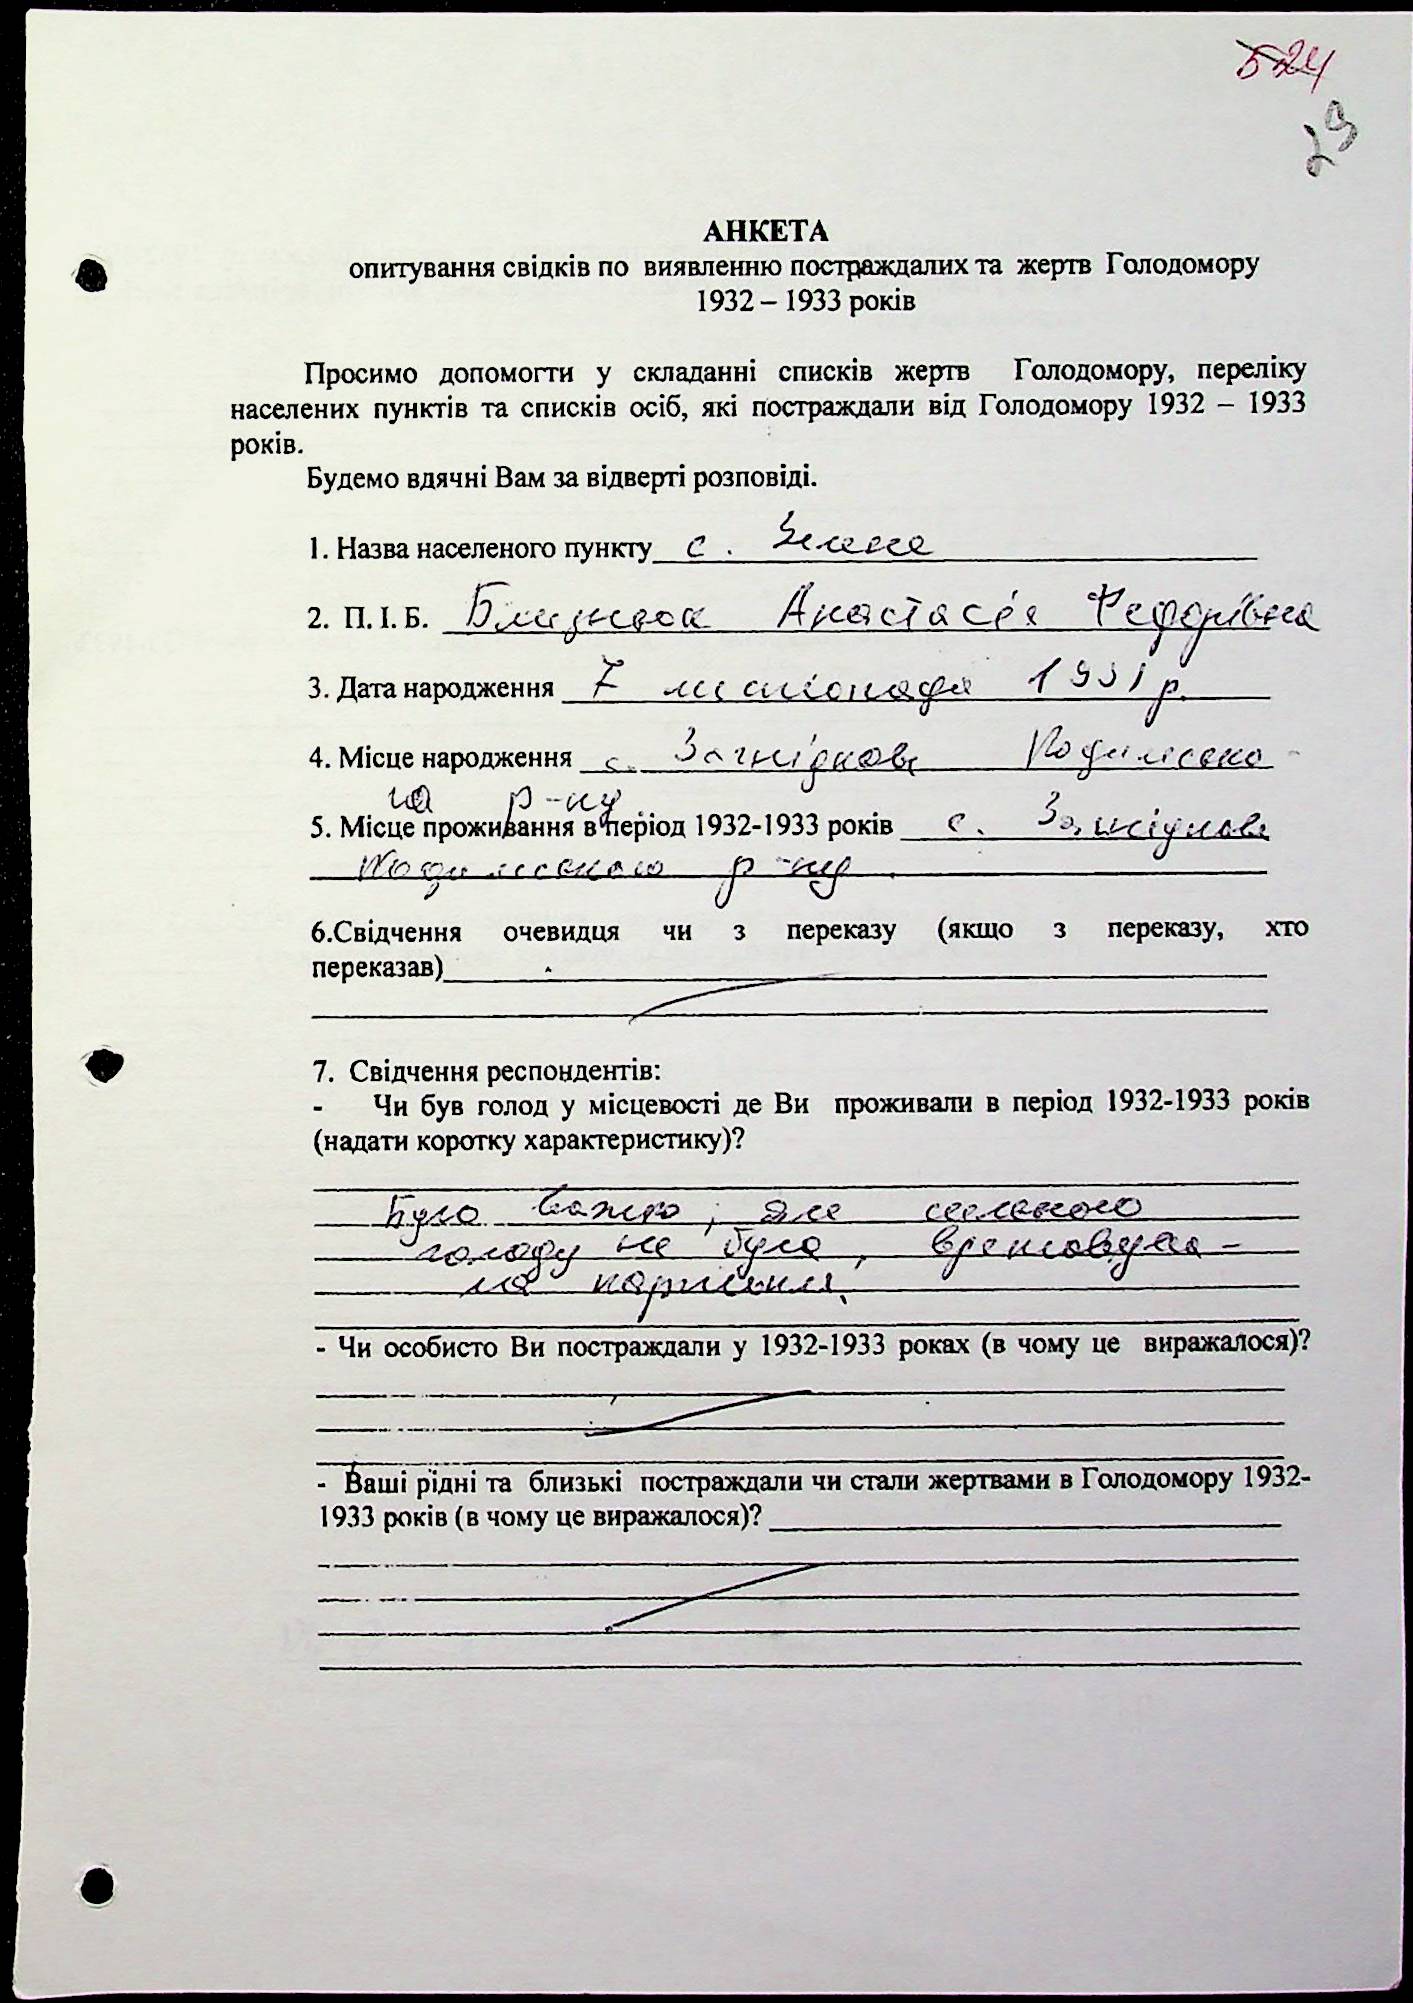 524
29
АНКЕТА
опитування свідків по виявленню постраждалих та жертв Голодомору
1932 – 1933 років
Просимо допомогти у складанні списків жертв Голодомору, переліку
населених пунктів та списків осіб, які постраждали від Голодомору 1932 – 1933
років.
Будемо вдячні Вам за відверті розповіді.
1. Назва населеного пункту с. Зелена
2. П. І. Б. Близнюк Анастасія Федорівна
3. Дата народження 7 листопада 1931 р.
4. Місце народження с. Загніткове Кодимсько-
го р-ну
5. Місце проживання в період 1932-1933 років с. Загніткове
Кодимського р-ну
6.Свідчення очевидця чи з переказу (якщо з переказу, хто
переказав)
7. Свідчення респондентів:
- Чи був голод у місцевості де Ви проживали в період 1932-1933 років
(надати коротку характеристику)?
Було важко, але сильного
голоду не було, врятовува-
ла картопля.
- Чи особисто Ви постраждали у 1932-1933 роках (в чому це виражалося)?
- Ваші рідні та близькі постраждали чи стали жертвами в Голодомору 1932-
1933 років (в чому це виражалося)?